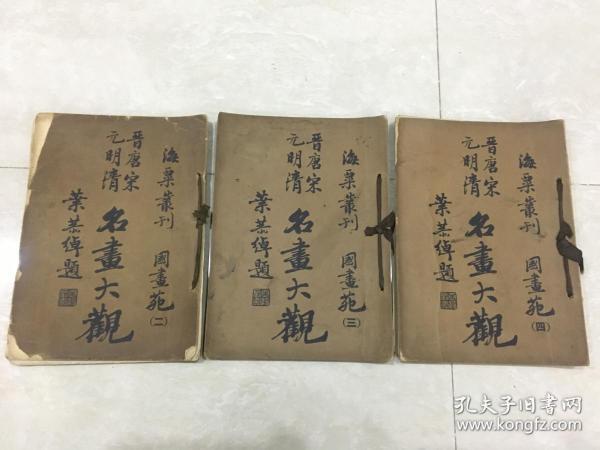 海粟叢刊 國畫苑(二)
晋唐宋
元明清
名畫大觀
葉恭綽題
海粟叢刊 國畫苑(三)
晋唐宋
元明清
名畫大觀
葉恭綽題
海粟叢刊 國畫苑(四)
晋唐宋
元明清
名畫大觀
葉恭綽題
孔夫子旧书网
www.kongfz.com